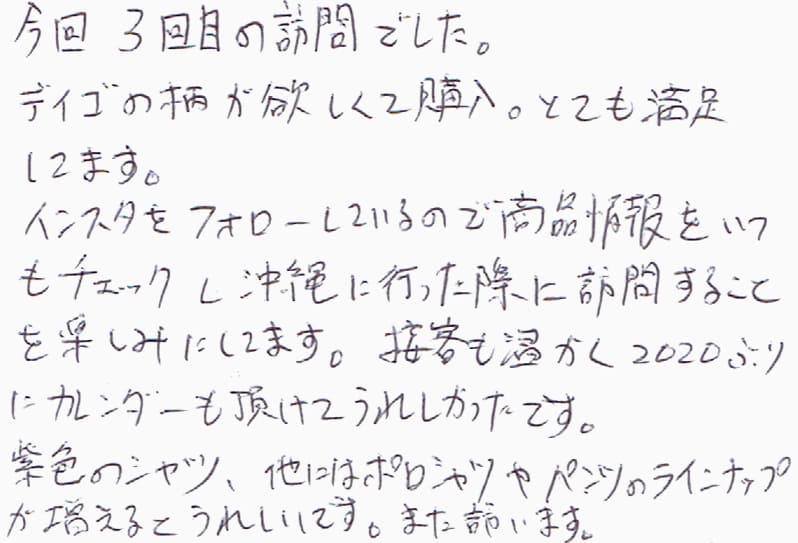 今回 3回目の訪問でした。
デイゴの柄が欲しくて購入。とても満足
してます。
インスタをフォローしているので商品情報をいつ
もチェックし沖縄に行った際に訪問すること
を楽しみにしてます。接客も温かく2020ぶり
にカレンダーも頂けてうれしかったです。
紫色のシャツ、他にはポロシャツやパンツのラインナップ
が増えるとうれしいです。また伺います。